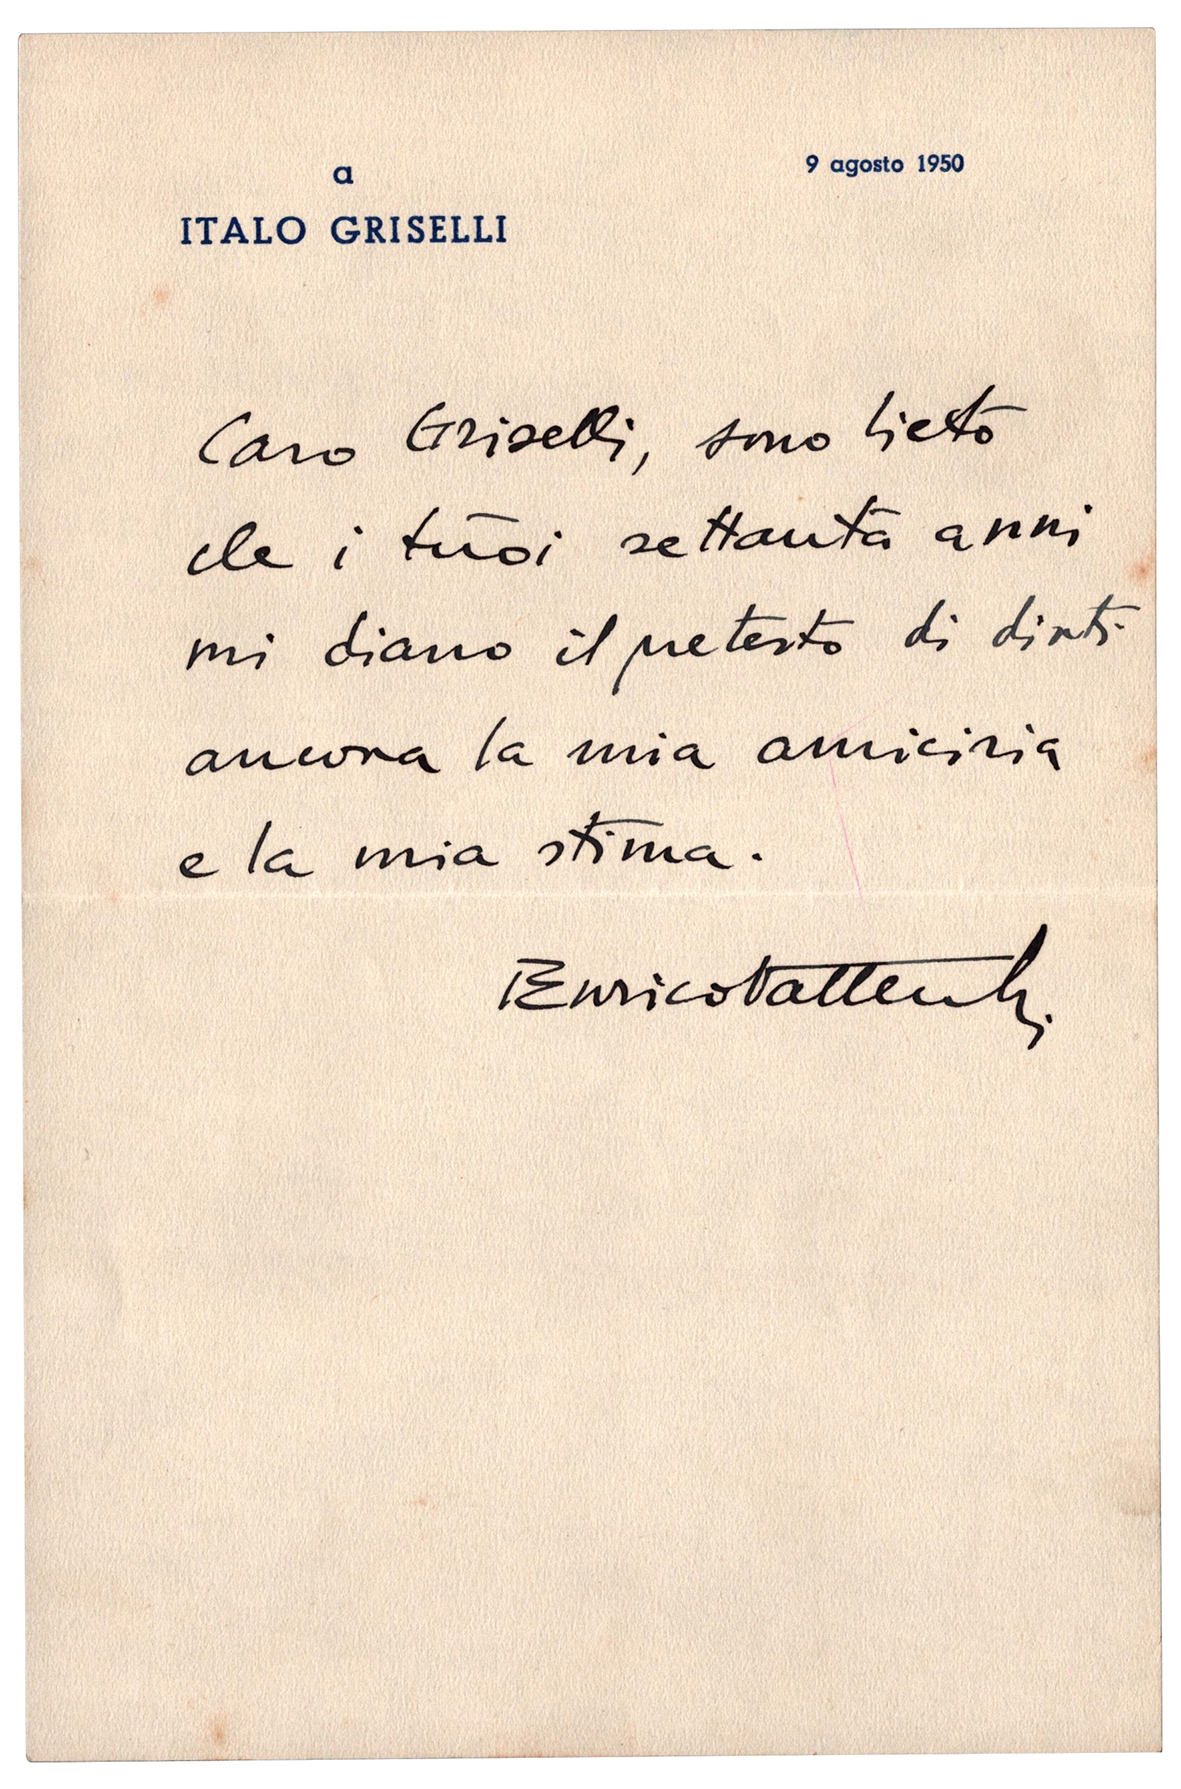 a
9 agosto 1950
ITALO GRISELLI
Caro Griselli, sono lieto
che i tuoi settanta anni
mi diano il pretesto di dirti
ancora la mia amicizia
e la mia stima.
Enrico